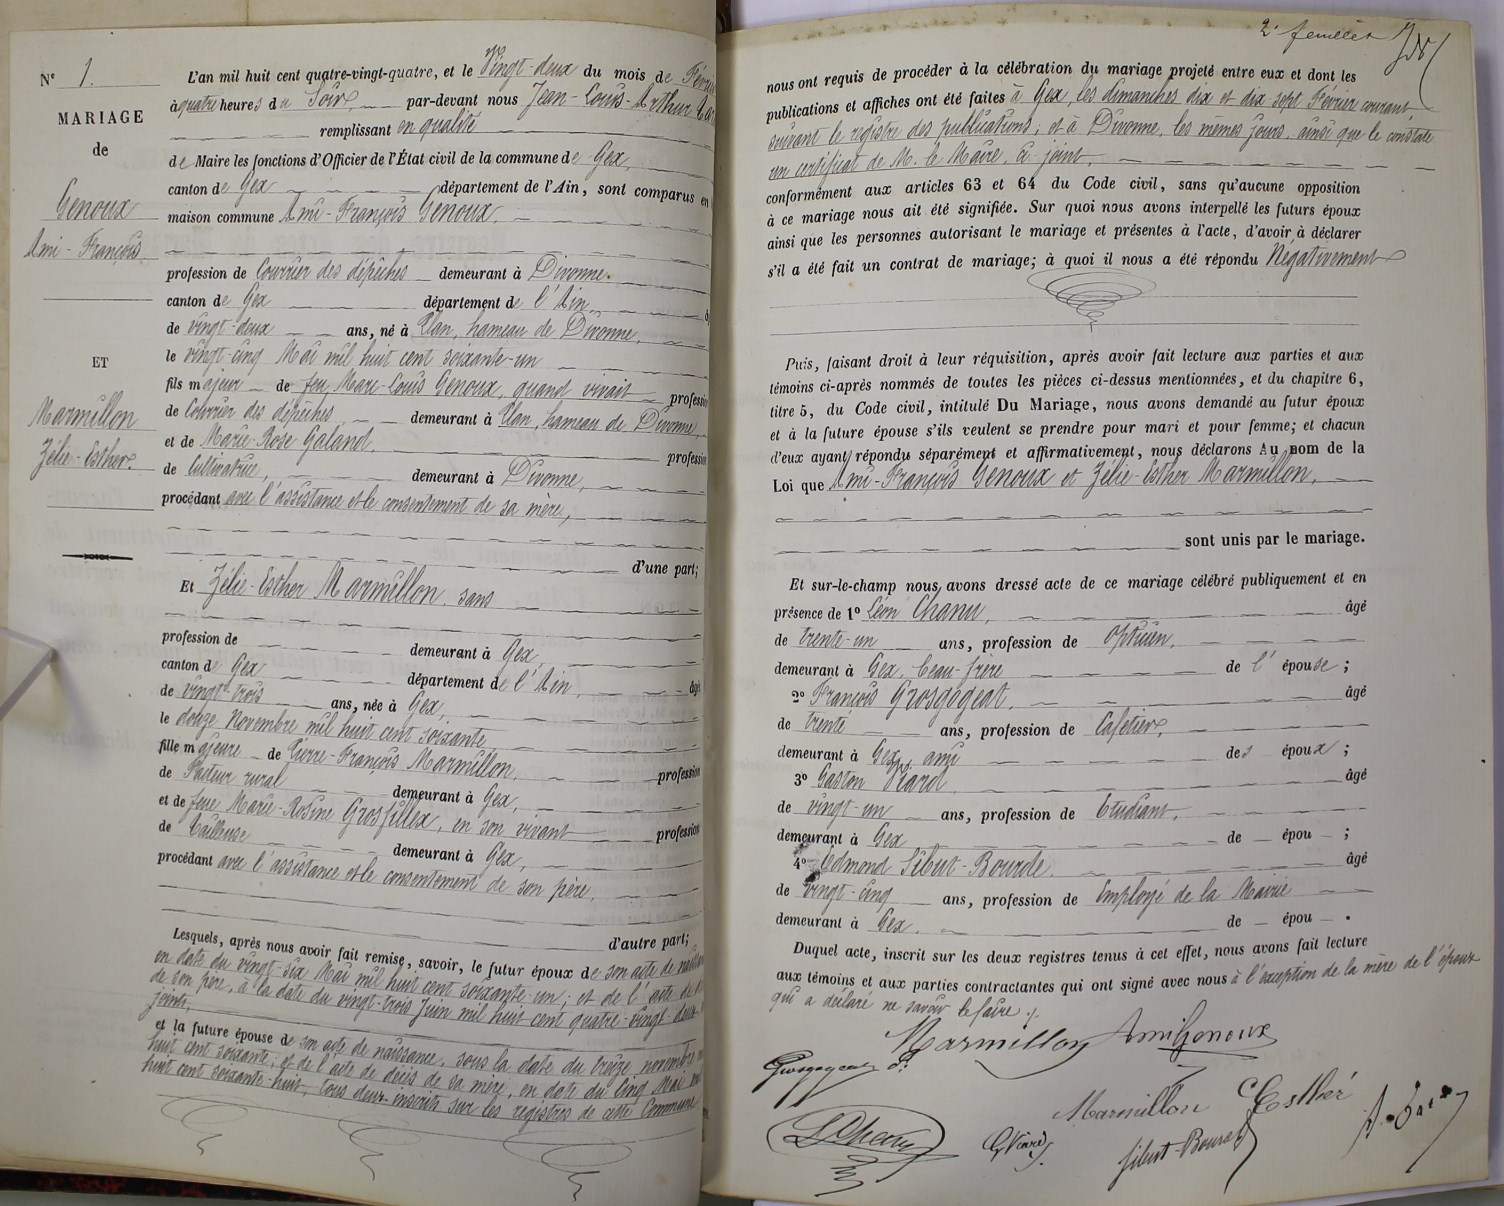 N° 1.
MARIAGE
de
Genoux
Ami-François
ET
Marmillon
Zélie-Esther.
L'an mil huit cent quatre-vingt-quatre, et le Vingt-deux du mois de Février
à quatre heures du Soir, par-devant nous Jean-Louis-Arthur
remplissant en qualité
de Maire les fonctions d'Officier de l'État civil de la commune de Gex,
canton de Gex département de l'Ain, sont comparus en
maison commune Ami-François Genoux,
profession de Courrier des dépêches demeurant à Divonne.
canton de Gex département de l'Ain,
de vingt-deux ans, né à Plan, hameau de Divonne,
le vingt-cinq Mai mil huit cent soixante-un
fils majeur de feu Marc-Louis Genoux, quand vivait profession
de Courrier des dépêches demeurant à Plan, hameau de Divonne,
et de Marie-Rose Galand, profession
de Cultivatrice, demeurant à Divonne,
procédant avec l'assistance et le consentement de sa mère,
d'une part;
Et Zélie-Esther Marmillon, sans
profession de demeurant à Gex,
canton de Gex département de l'Ain, âgé
de vingt-trois ans, née à Gex,
le douze Novembre mil huit cent soixante
fille majeure de Pierre-François Marmillon, profession
de Facteur rural demeurant à Gex,
et de feue Marie-Rosine Grosfillex, en son vivant profession
de Tailleuse demeurant à Gex,
procédant avec l'assistance et le consentement de son père,
d'autre part;
Lesquels, après nous avoir fait remise, savoir, le futur époux de son acte de
en date du vingt-six Mai mil huit cent soixante-un; et de l'acte de
de son père, à la date du vingt-trois Juin mil huit cent quatre-vingt deux
joints,
et la future épouse de son acte de naissance, sous la date du treize novembre
huit cent soixante; et de l'acte de décès de sa mère, en date du cinq Mai
huit cent soixante-huit, tous deux inscrits sur les registres de cette Commune
2e feuillet
nous ont requis de procéder à la célébration du mariage projeté entre eux et dont les
publications et affiches ont été faites à Gex, les dimanches dix et dix sept Février courant,
suivant le registre des publications; et à Divonne, les mêmes jours, ainsi que le constate
un certificat de M. le Maire, ci joint,
conformément aux articles 63 et 64 du Code civil, sans qu'aucune opposition
à ce mariage nous ait été signifiée. Sur quoi nous avons interpellé les futurs époux
ainsi que les personnes autorisant le mariage et présentes à l'acte, d'avoir à déclarer
s'il a été fait un contrat de mariage; à quoi il nous a été répondu Négativement
Puis, faisant droit à leur réquisition, après avoir fait lecture aux parties et aux
témoins ci-après nommés de toutes les pièces ci-dessus mentionnées, et du chapitre 6,
titre 5, du Code civil, intitulé Du Mariage, nous avons demandé au futur époux
et à la future épouse s'ils veulent se prendre pour mari et pour femme; et chacun
d'eux ayant répondu séparément et affirmativement, nous déclarons Au nom de la
Loi que Ami-François Genoux et Zélie-Esther Marmillon,
sont unis par le mariage.
Et sur-le-champ nous avons dressé acte de ce mariage célébré publiquement et en
présence de 1° Léon Chanu, âgé
de trente-un ans, profession de Opticien,
demeurant à Gex, beau-frère de l'épouse;
2° François Grosgogeat, âgé
de trente ans, profession de Cafetier,
demeurant à Gex, ami des époux;
3° Gaston Viard, âgé
de vingt-un ans, profession de Etudiant,
demeurant à Gex de épou ;
4° Edmond Sibut-Bourde, âgé
de vingt-cinq ans, profession de Employé de la Mairie
demeurant à Gex, de épou .
Duquel acte, inscrit sur les deux registres tenus à cet effet, nous avons fait lecture
aux témoins et aux parties contractantes qui ont signé avec nous à l'exception de la mère de l'époux
qui a déclaré ne savoir le faire ./.
Marmillon Ami Genoux
Grosgogeat
Marmillon Esther
L Chanu G Viard Sibut-Bourde